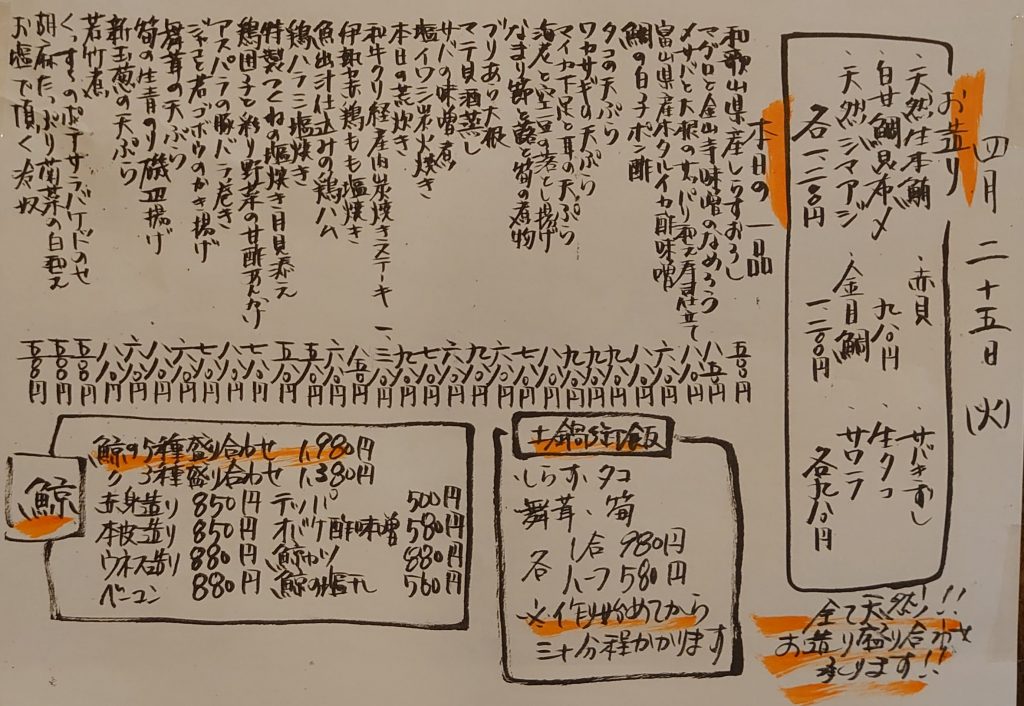 四月二十五日(火)
お造り
・天然生本鮪
・白甘鯛昆布〆
・天然シマアジ
各一、二〇〇円
・赤貝
九八〇円
・金目鯛
一二〇〇円
・サバきずし
・生タコ
・サワラ
各九八〇円
全て天然!!
お造り盛り合わせ
承ります!!
本日の一品
和歌山県産しらすおろし 五〇〇円
マグロと金山寺味噌のなめろう 八五〇円
メサバと大根の 八〇〇円
富山県産ホタルイカ酢味噌 六八〇円
鯛の白子ポン酢 八八〇円
タコの天ぷら 九八〇円
ワカサギの天ぷら
マイカ下足と耳の天ぷら
海老と空豆の落とし揚げ
なまり節と蕗と筍の煮物
ブリあら大根
マテ貝酒蒸し
サバの味噌煮
塩イワシ炭火焼き
本日の荒炊き
和牛クリ経産肉炭焼きステーキ
伊勢赤鶏もも塩焼き
魚出汁仕込みの鶏ハム
鶏ハラミ塩焼き
特製つくねの塩焼き月見添え
鶏団子と彩り野菜の甘酢あんかけ
アスパラの豚バラ巻き
ジャコと若ゴボウのかき揚げ
舞茸の天ぷら
筍の生青のり磯辺揚げ
新玉葱の天ぷら
若竹煮
くんすけのポテサラバゲットのせ 五〇〇円
胡麻たっぷり菊菜の白和え 五〇〇円
お塩で頂く冷奴 五〇〇円
土鍋御飯
しらす、タコ
舞茸、筍
各 1合 980円
ハーフ 580円
※作り始めてから
三十分程かかります
鯨
鯨の5種盛り合わせ 1,980円
〃 3種盛り合わせ 1,380円
赤身造り 850円 テッパ 500円
本皮造り 850円 オバケ酢味噌 580円
ウネス造り 880円 鯨カツ 880円
ベーコン 880円 鯨の塩干し 560円